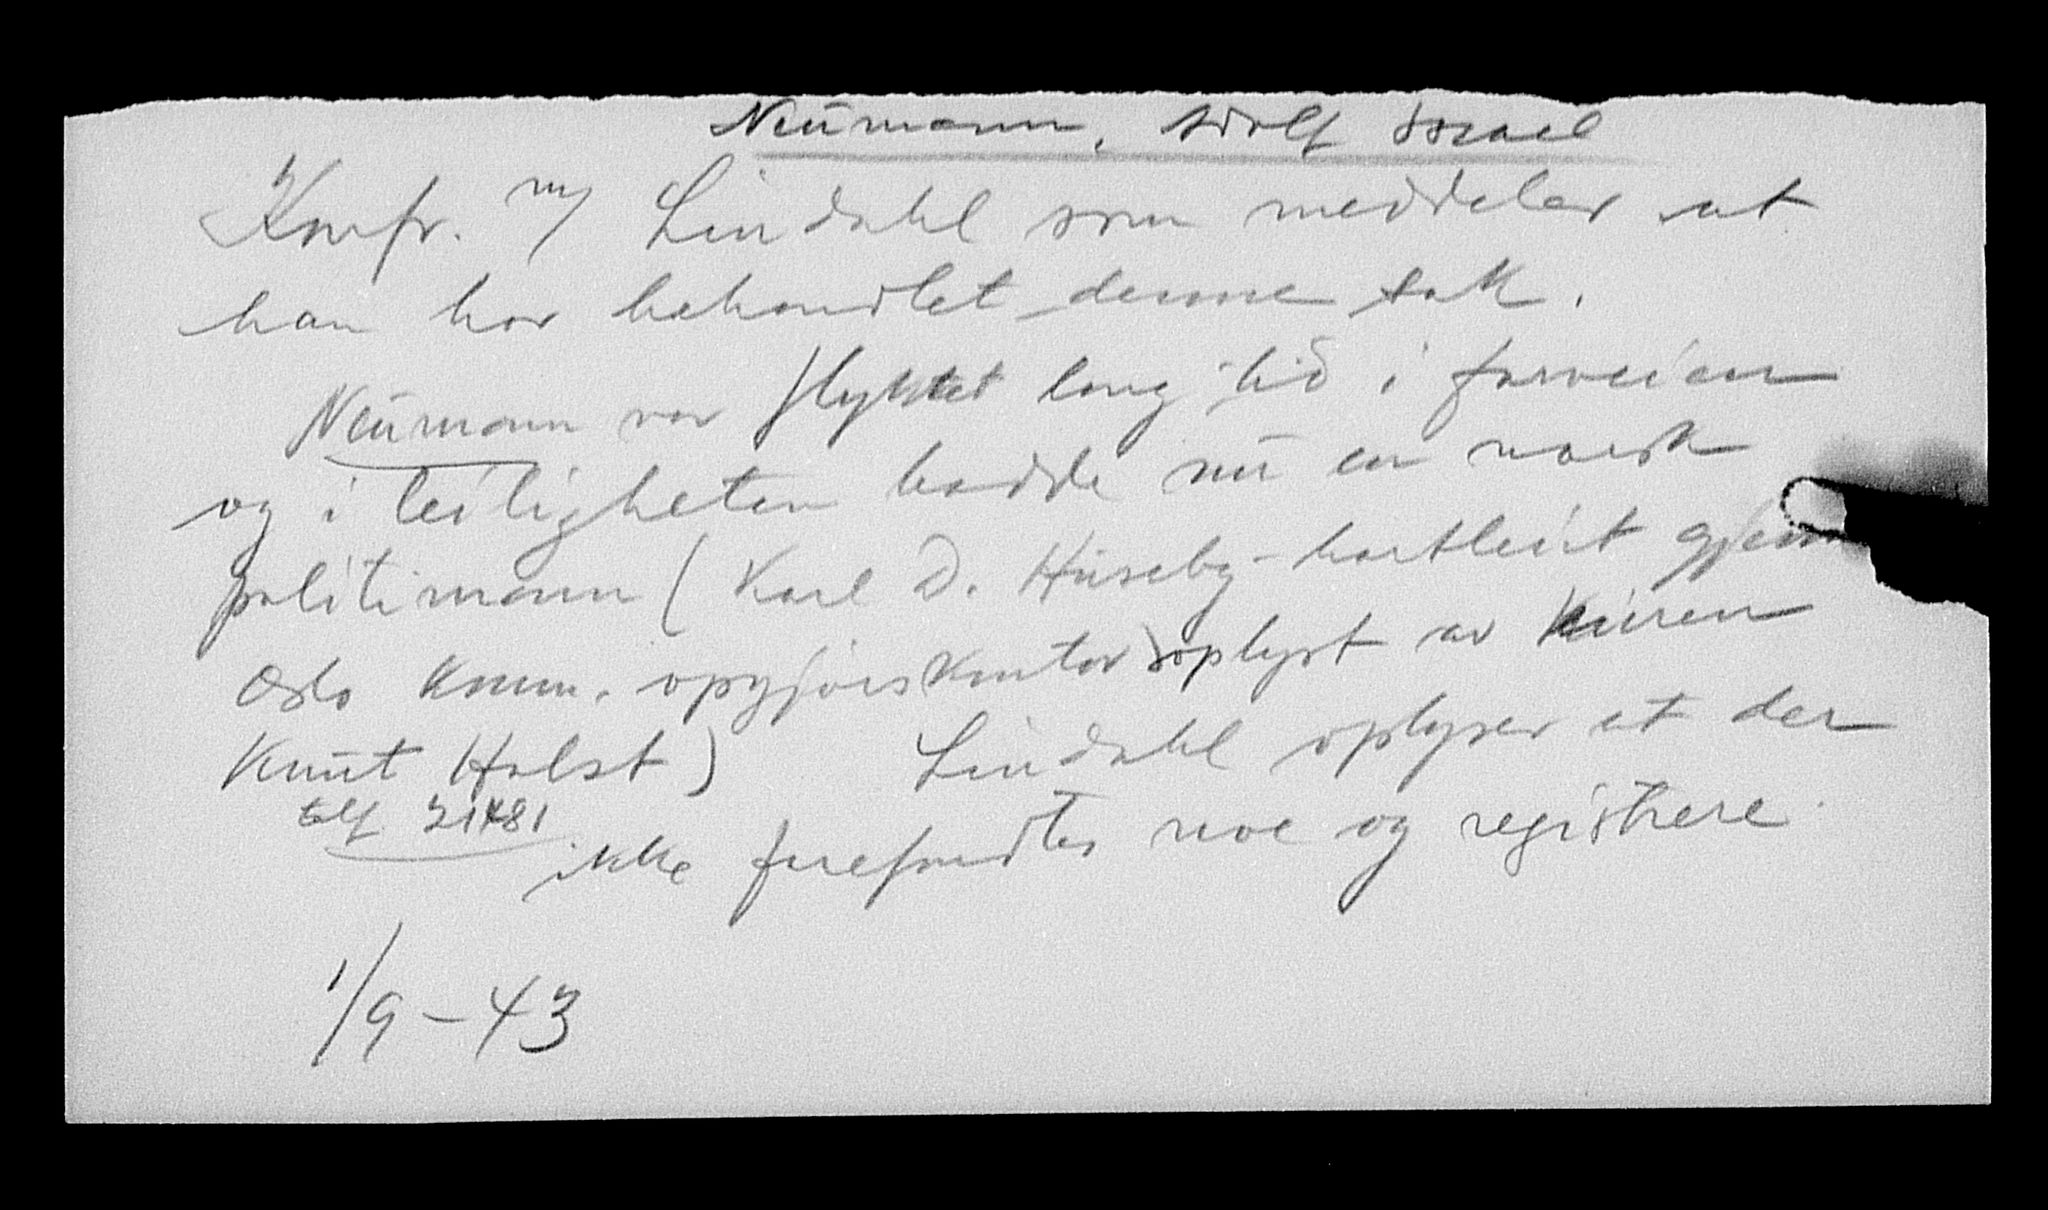 Neumann, Adolf Israel
Konfr. m/ Lindahl som meddeler at
han har behandlet denne sak.
Neumann var flyktet lang tid i forveien
og i leiligheten hadde nu en norsk
politimann (Karl D. Huseby - bortleiet gjenn
Oslo komm. opgjørskontor oplyst av
Knut Holst) Lindahl oplyser at der
tlf 21481
ikke forefandtes noe og registrere
1/9-43